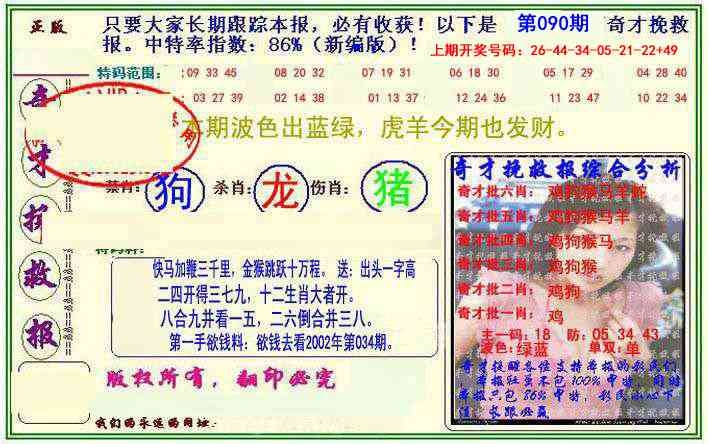 正版
只要大家长期跟踪本报，必有收获！以下是 第090期 奇才挽救
报。中特率指数：86%（新编版）！ 上期开奖号码：26-44-34-05-21-22+49
特码范围：:09 33 45 08 20 32 07 19 31 06 18 30 05 17 29 04 28 40
:03 27 39 02 14 38 01 13 37 12 24 36 11 23 47 10 22 34
本期波色出蓝绿，虎羊今期也发财。
禁肖：狗 杀肖：龙 伤肖：猪
快马加鞭三千里，金猴跳跃十万程。 送：出头一字高
二四开得三七九，十二生肖大者开。
八合九并看一五，二六倒合并三八。
第一手欲钱料：欲钱去看2002年第034期。
版权所有，翻印必究
我们的永远的网址：
奇才挽救报
奇才挽救报综合分析
奇才批六肖：鸡狗猴马羊蛇
奇才批五肖：鸡狗猴马羊
奇才批四肖：鸡狗猴马
奇才批三肖：鸡狗猴
奇才批二肖：鸡狗
奇才批一肖：鸡
主一码：18 防：05 34 43
波色：绿蓝 单双：单
奇才提醒各位支持本报的彩民们
，本报往虽不包100%中特，同时
本报只包86%中特，彩民小心下
注，求跟必赢